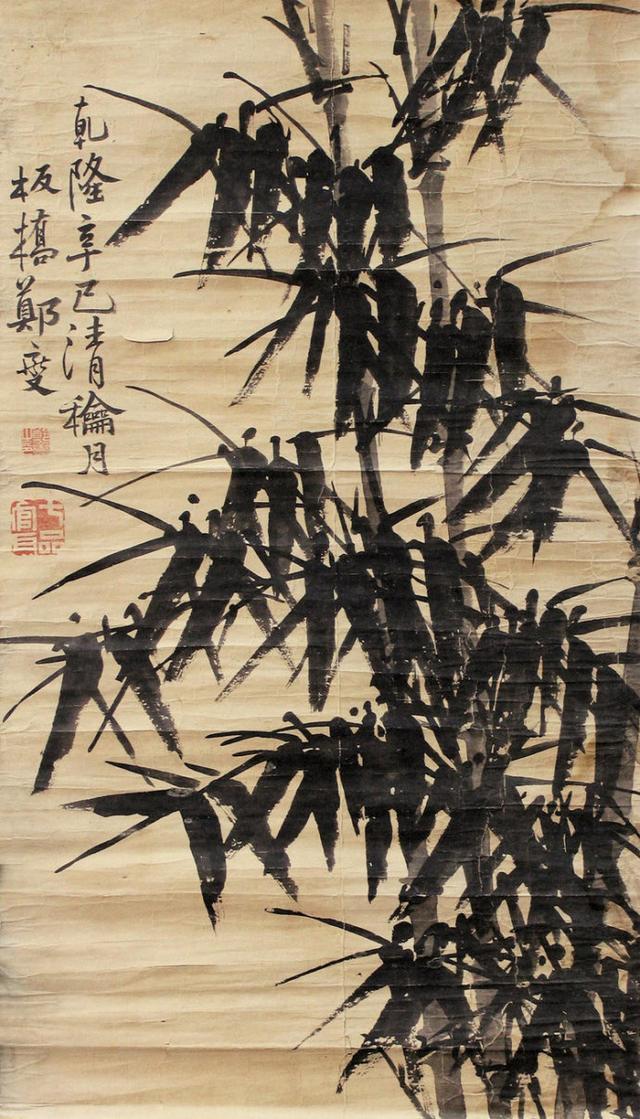 乾隆辛巳清龢月
板橋鄭燮
七品
官耳